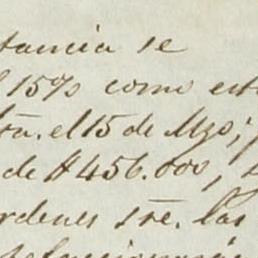 tancia se
15% como est
tra. el 15 de Mzo;
de $456.000,
rdenes sre. las